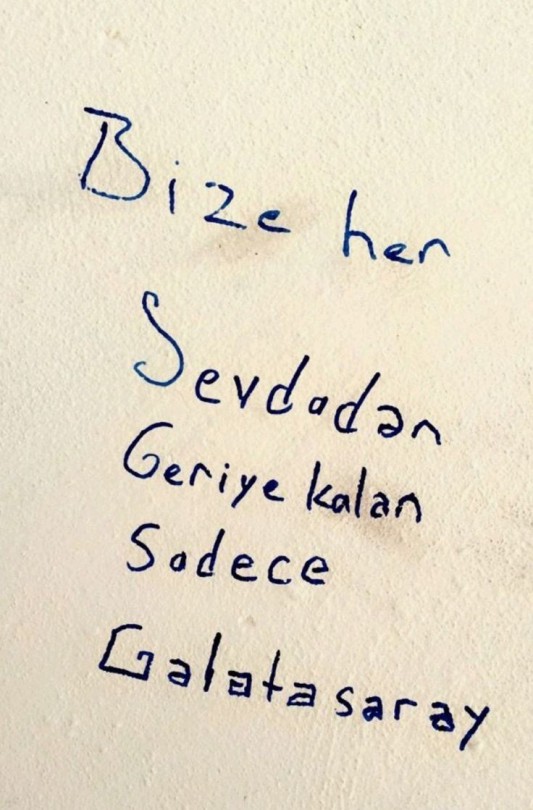 Bize her
Sevdadan
Geriye kalan
Sadece
Galatasaray